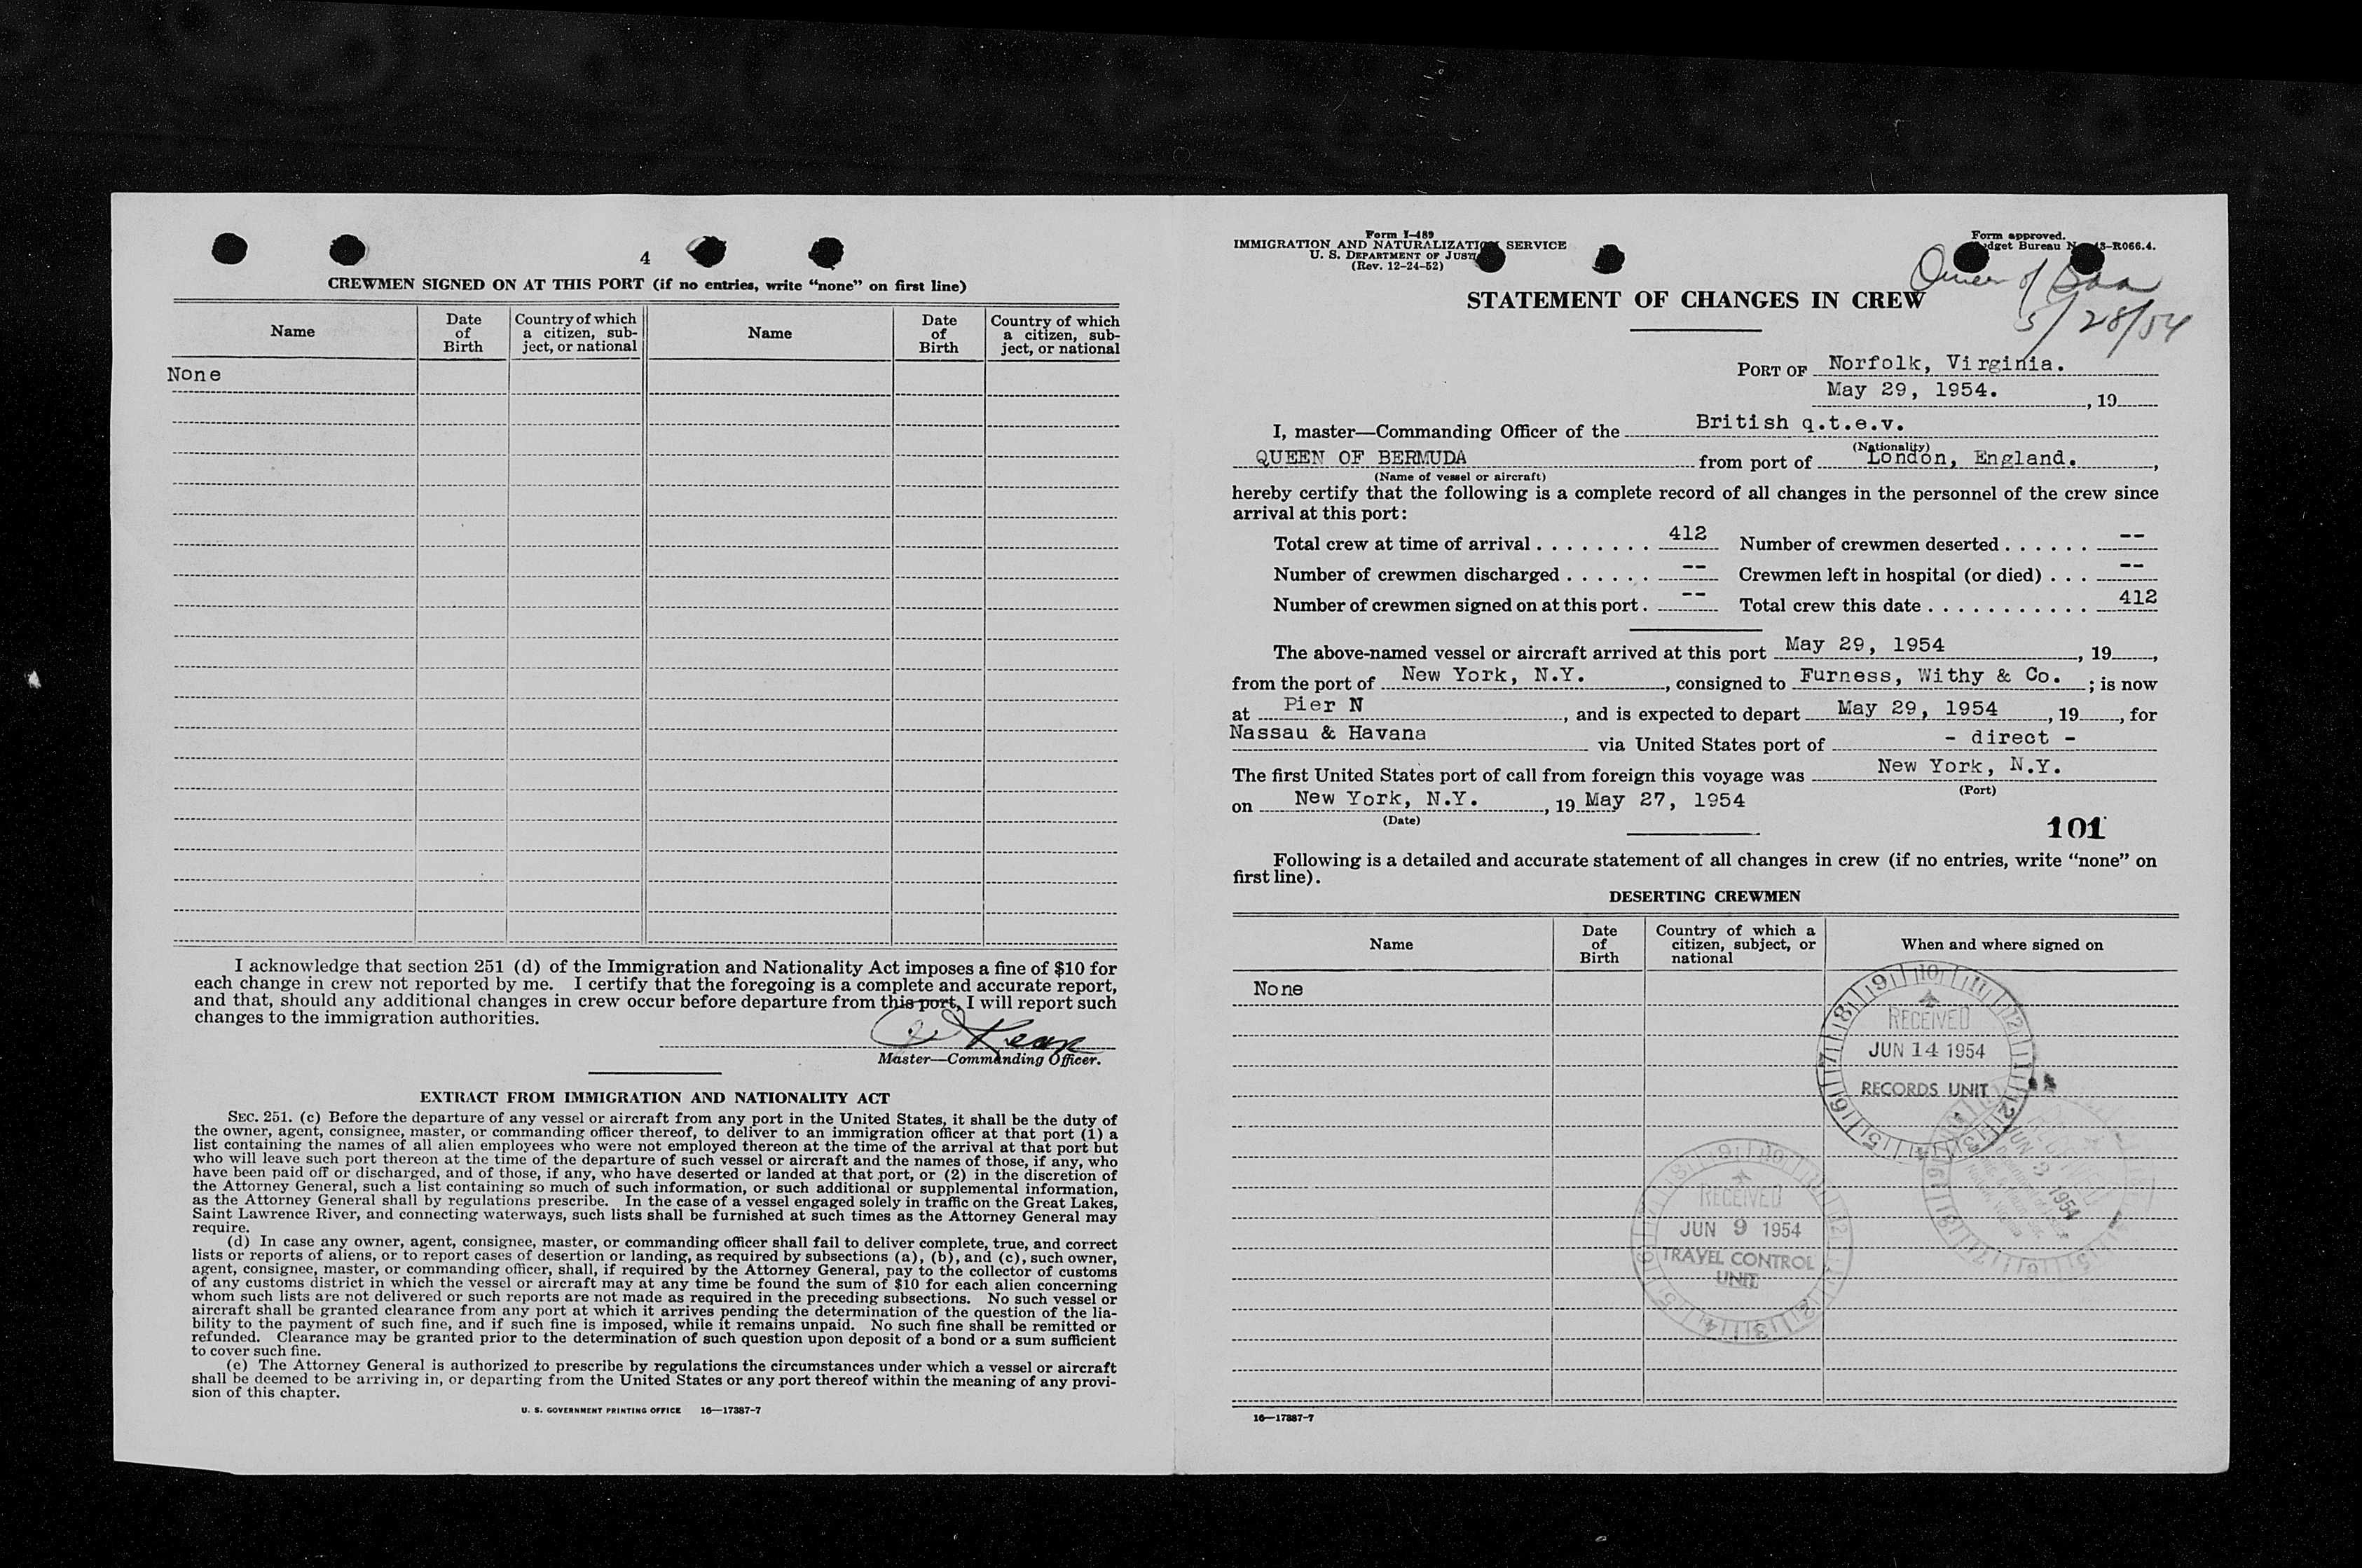 4
CREWMEN SIGNED ON AT THIS PORT (if no entries, write “none” on first line)
Name
Date of Birth
Country of which a citizen, subject, or national
Name
Date of Birth
Country of which a citizen, subject, or national
None
I acknowledge that section 251 (d) of the Immigration and Nationality Act imposes a fine of $10 for
each change in crew not reported by me. I certify that the foregoing is a complete and accurate report,
and that, should any additional changes in crew occur before departure from this port, I will report such
changes to the immigration authorities.
Master—Commanding Officer.
EXTRACT FROM IMMIGRATION AND NATIONALITY ACT
SEC. 251. (c) Before the departure of any vessel or aircraft from any port in the United States, it shall be the duty of
the owner, agent, consignee, master, or commanding officer thereof, to deliver to an immigration officer at that port (1) a
list containing the names of all alien employees who were not employed thereon at the time of the arrival at that port but
who will leave such port thereon at the time of the departure of such vessel or aircraft and the names of those, if any, who
have been paid off or discharged, and of those, if any, who have deserted or landed at that port, or (2) in the discretion of
the Attorney General, such a list containing so much of such information, or such additional or supplemental information,
as the Attorney General shall by regulations prescribe. In the case of a vessel engaged solely in traffic on the Great Lakes,
Saint Lawrence River, and connecting waterways, such lists shall be furnished at such times as the Attorney General may
require.
(d) In case any owner, agent, consignee, master, or commanding officer shall fail to deliver complete, true, and correct
lists or reports of aliens, or to report cases of desertion or landing, as required by subsections (a), (b), and (c), such owner,
agent, consignee, master, or commanding officer, shall, if required by the Attorney General, pay to the collector of customs
of any customs district in which the vessel or aircraft may at any time be found the sum of $10 for each alien concerning
whom such lists are not delivered or such reports are not made as required in the preceding subsections. No such vessel or
aircraft shall be granted clearance from any port at which it arrives pending the determination of the question of the lia-
bility to the payment of such fine, and if such fine is imposed, while it remains unpaid. No such fine shall be remitted or
refunded. Clearance may be granted prior to the determination of such question upon deposit of a bond or a sum sufficient
to cover such fine.
(e) The Attorney General is authorized to prescribe by regulations the circumstances under which a vessel or aircraft
shall be deemed to be arriving in, or departing from the United States or any port thereof within the meaning of any provi-
sion of this chapter.
U. S. GOVERNMENT PRINTING OFFICE 16—17387-7
Form I-489
IMMIGRATION AND NATURALIZATION SERVICE
U. S. DEPARTMENT OF
(Rev. 12-24-52)
Form approved.
Bureau
-R066.4.
Queen of
5/28/54
STATEMENT OF CHANGES IN CREW
PORT OF Norfolk, Virginia.
May 29, 1954. , 19
I, master—Commanding Officer of the British q.t.e.v.
(Nationality)
QUEEN OF BERMUDA from port of London, England. ,
(Name of vessel or aircraft)
hereby certify that the following is a complete record of all changes in the personnel of the crew since
arrival at this port:
Total crew at time of arrival . . . . . . . . 412 Number of crewmen deserted . . . . . . --
Number of crewmen discharged . . . . . . -- Crewmen left in hospital (or died) . . . --
Number of crewmen signed on at this port . -- Total crew this date . . . . . . . . . . . 412
The above-named vessel or aircraft arrived at this port May 29, 1954 , 19 ,
from the port of New York, N.Y. , consigned to Furness, Withy & Co. ; is now
at Pier N , and is expected to depart May 29, 1954 , 19 , for
Nassau & Havana via United States port of - direct -
The first United States port of call from foreign this voyage was New York, N.Y.
(Port)
on New York, N.Y. , 19 May 27, 1954
(Date)
101
Following is a detailed and accurate statement of all changes in crew (if no entries, write “none” on
first line).
DESERTING CREWMEN
Name
Date of Birth
Country of which a citizen, subject, or national
When and where signed on
None
RECEIVED
JUN 14 1954
RECORDS UNIT
RECEIVED
JUN 9 1954
TRAVEL CONTROL
UNIT
1954
16—17387-7